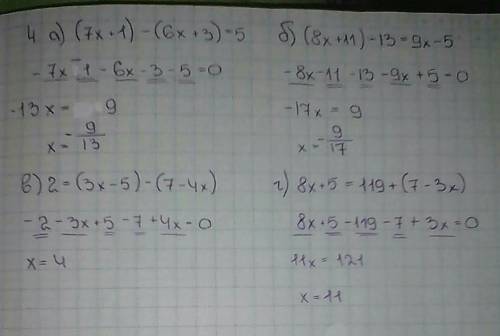 4 а) (7x+1)-(6x+3)=5
-7x-1-6x-3-5=0
-13x= 9
x=-9/13
б) (8x+11)-13=9x-5
-8x-11-13-9x+5-0
-17x=9
x=-9/17
в) 2=(3x-5)-(7-4x)
-2-3x+5-7+4x-0
x=4
г) 8x+5=119+(7-3x)
8x+5-119-7+3x=0
11x=121
x=11